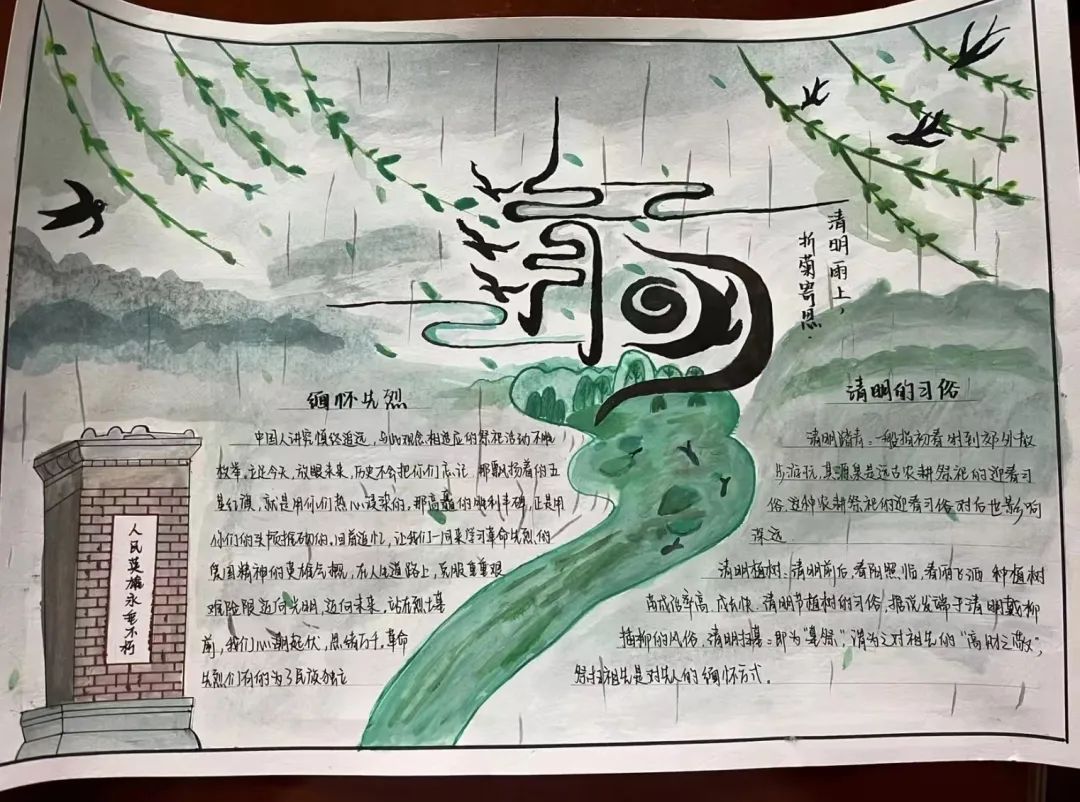 清明
清明雨上，
折菊寄思.
缅怀先烈
中国人讲究慎终追远，与此观念相适应的祭祀活动不胜
枚举。立足今天，放眼未来，历史不会把你们忘记，那飘扬着的五
星红旗，就是用你们热心浸染的。那高矗的胜利丰碑，正是用
你们的头颅撑砌的。回首追忆，让我们一同来学习革命先烈的
英雄气概，在人生道路上，克服重重艰
难险限迈向光明，迈向未来，站在烈士墓
前，我们心潮起伏，思绪万千。革命
先烈们有的为了民族独立
人民英雄永垂不朽
清明的习俗
清明踏青：一般指初春时到郊外散
步游玩，其源泉是远古农耕祭祀的迎春习
俗，这种农耕祭祀的迎春习俗对后世影响
深远
清明植树：清明前后，春阳照临，春雨飞洒，种植树
苗成活率高，成长快。清明节植树的习俗，据说发端于清明戴柳
插柳的风俗。清明扫墓：即为“墓祭”，谓为之对祖先的“思时之敬”，
祭扫祖先是对先人的缅怀方式。